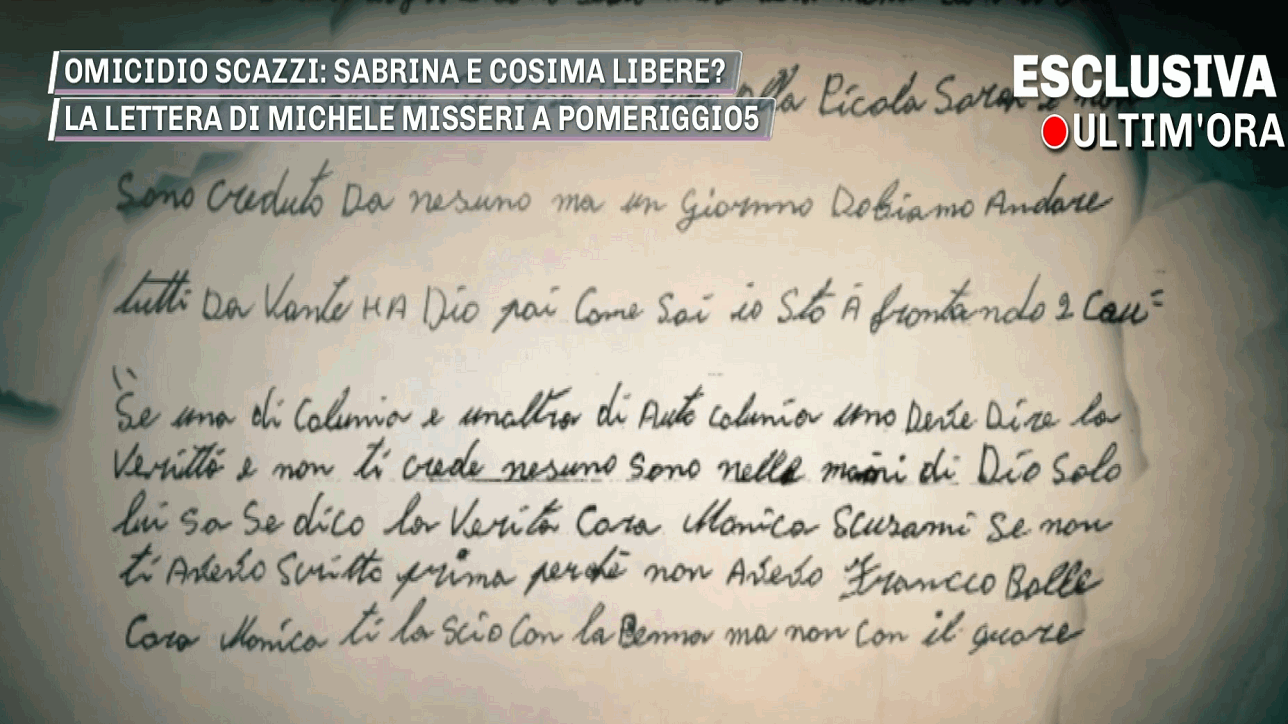 OMICIDIO SCAZZI: SABRINA E COSIMA LIBERE?
LA LETTERA DI MICHELE MISSERI A POMERIGGIO5
ESCLUSIVA
ULTIM'ORA
Picola Sarah e non
Sono creduto Da nesuno ma un Giornno Dobiamo Andare
tutti Da Vante HA Dio poi Come Sai io Sto A frontando 2 Cau=
"Se una di Calunia e unaltra di Auto calunia uno Deve Dire la
Verittá e non ti crede nesuno Sono nelle mani di Dio Solo
lui sa Se dico la Veritá Cara Monica Scusami Se non
ti Avevo Scritto prima perchè non Avevo Francco Bolle
Cara Monica ti la scio Con la Penna ma non Con il quore